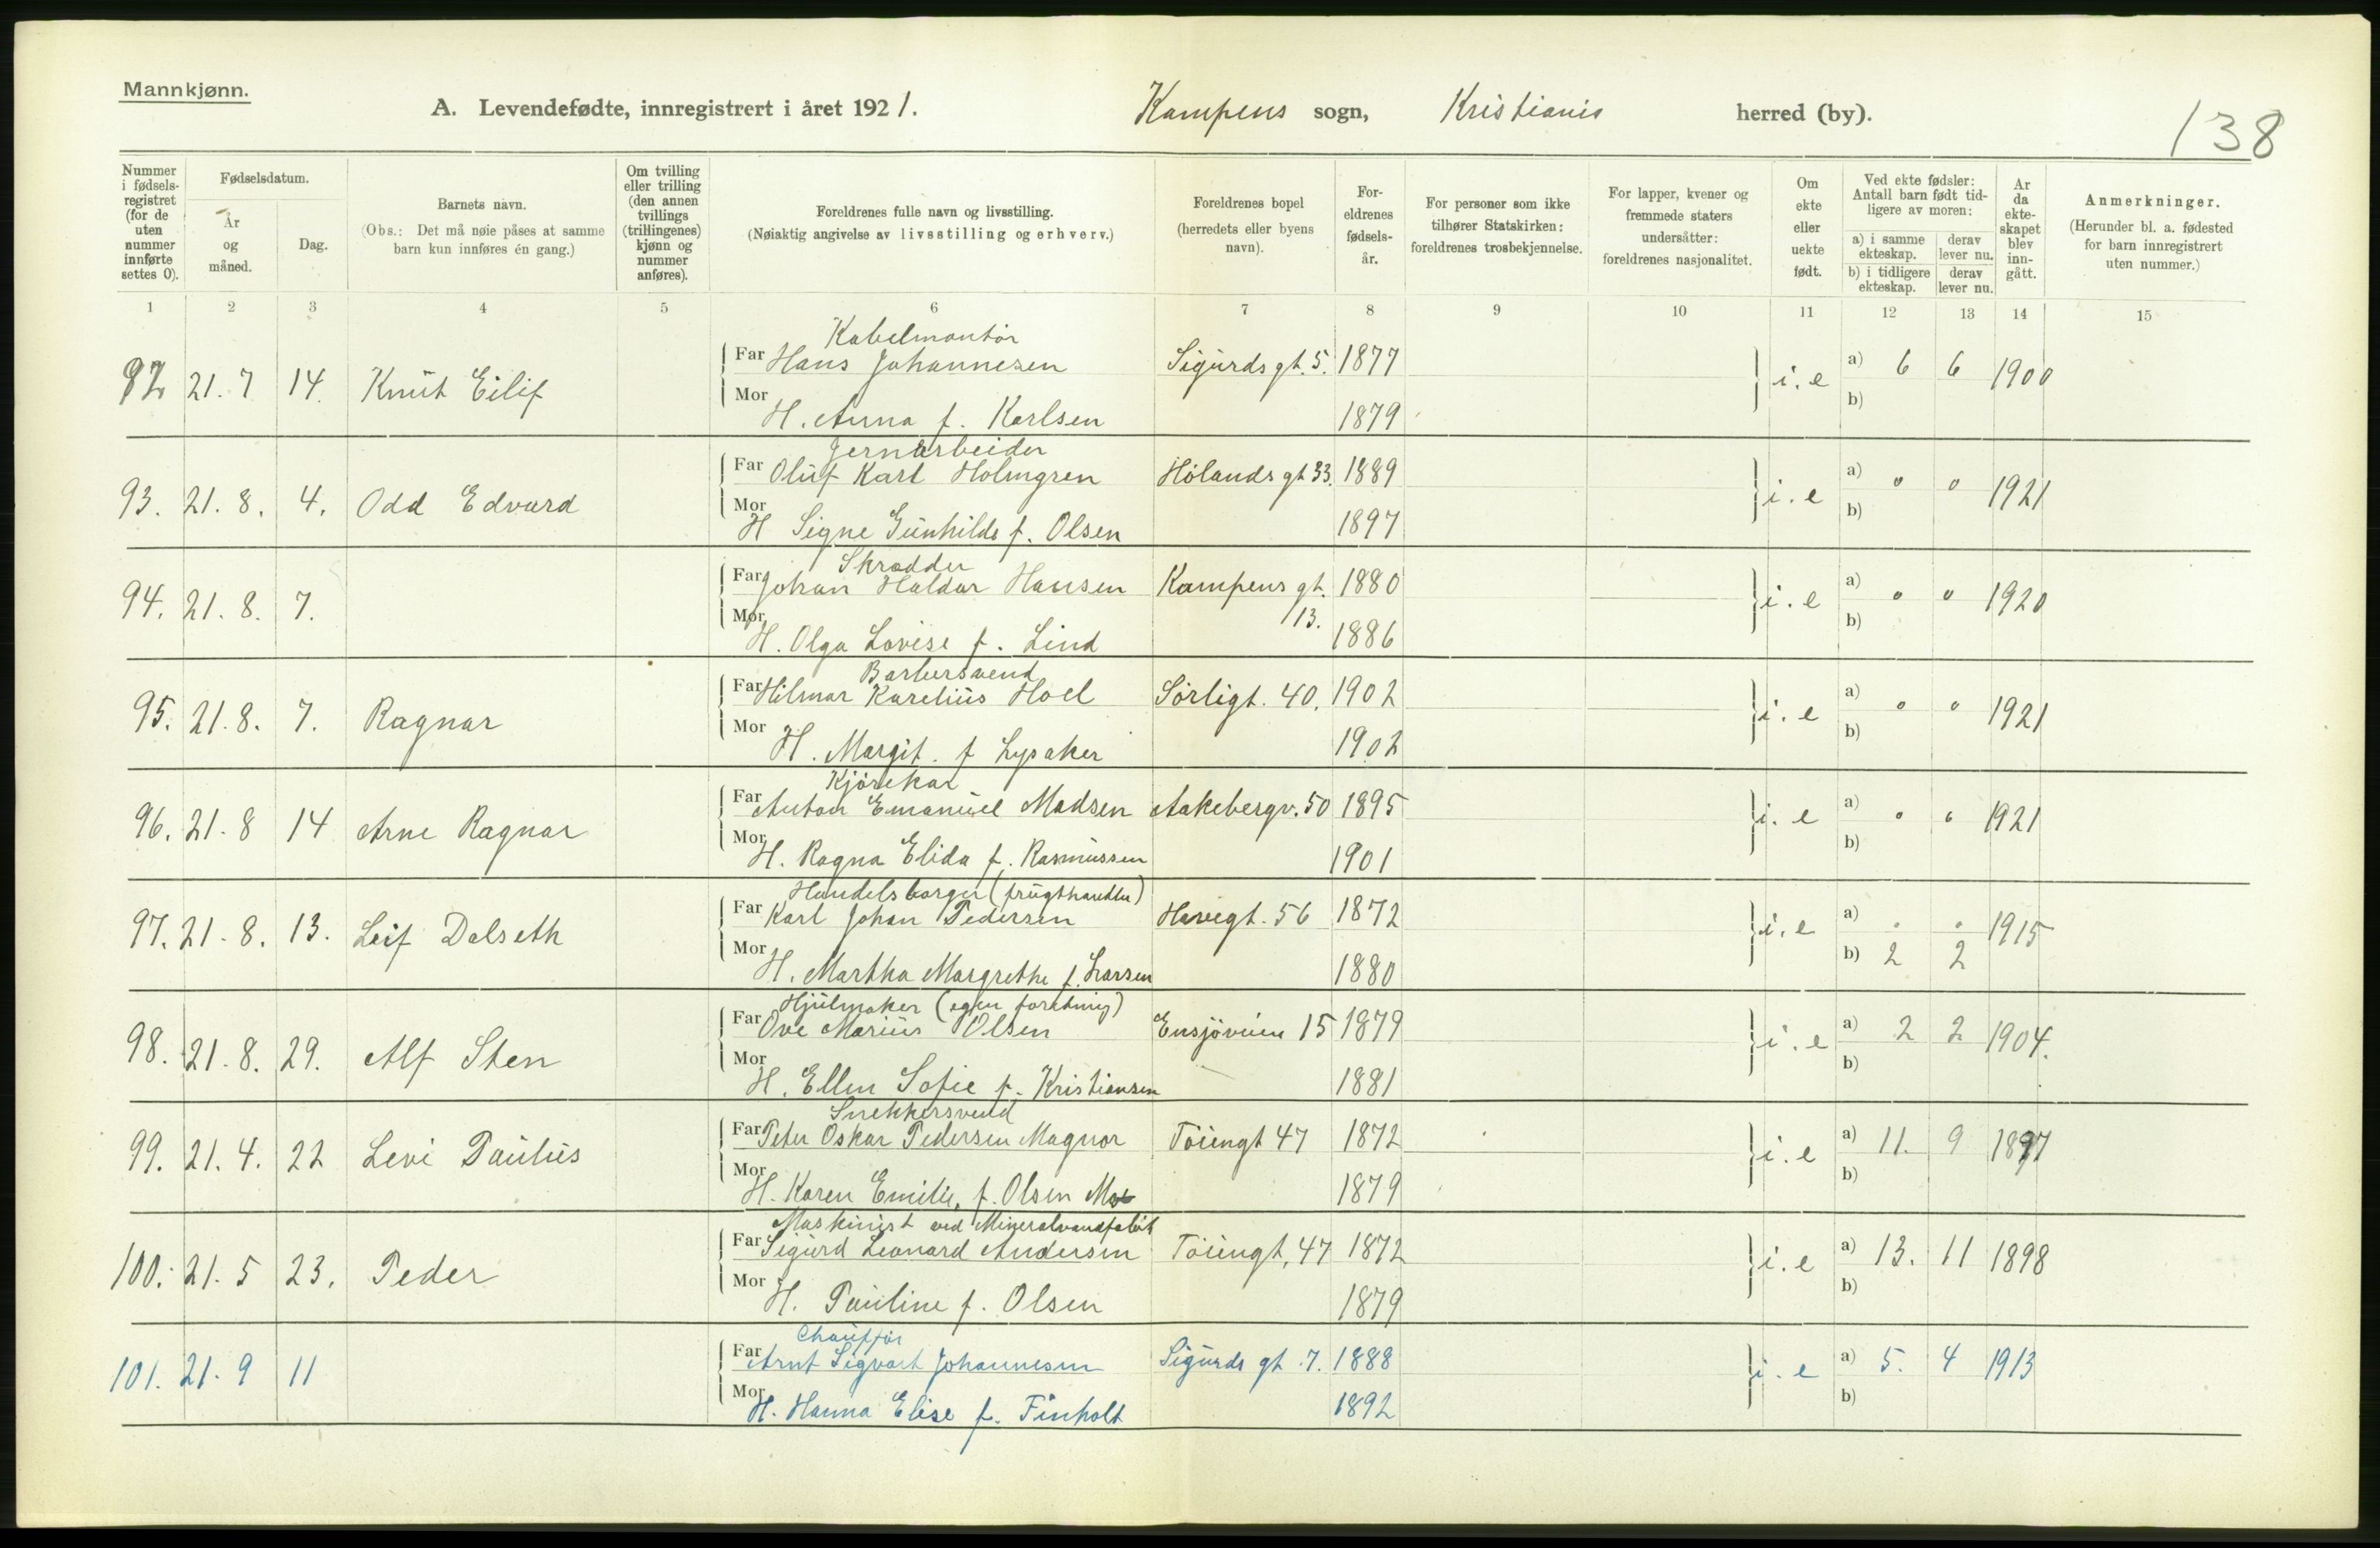 Mannkjønn.
A. Levendefødte, innregistrert i året 1921. Kampens sogn, Kristiania herred (by).
138
Nummer i fødselsregistret (for de uten nummer innførte settes 0).
Fødselsdatum.
År og måned.
Dag.
Barnets navn.
(Obs.: Det må nøie påses at samme barn kun innføres én gang.)
Om tvilling eller trilling (den annen tvillings (trillingenes) kjønn og nummer anføres).
Foreldrenes fulle navn og livsstilling.
(Nøiaktig angivelse av livsstilling og erhverv.)
Foreldrenes bopel (herredets eller byens navn).
Foreldrenes fødselsår.
For personer som ikke tilhører Statskirken: foreldrenes trosbekjennelse.
For lapper, kvener og fremmede staters undersåtter: foreldrenes nasjonalitet.
Om ekte eller uekte født.
Ved ekte fødsler: Antall barn født tidligere av moren:
a) i samme ekteskap. derav lever nu.
b) i tidligere ekteskap. derav lever nu.
År da ekteskapet blev inngått.
Anmerkninger.
(Herunder bl. a. fødested for barn innregistrert uten nummer.)
1 2 3 4 5 6 7 8 9 10 11 12 13 14 15
Kabelmontör
92 21. 7 14. Knut Eilif Far Hans Johannesen Sigurds gt. 5. 1877 i. e a) 6 6 1900
Mor H. Anna f. Karlsen 1879 b)
Jernarbeider
93. 21. 8. 4. Odd Edvard Far Oluf Karl Holmgren Hölands gt 33. 1889 i. e a) " " 1921
Mor H Signe Gunhilde f. Olsen 1897 b)
Skrædder
94. 21. 8. 7. Far Johan Haldar Hansen Kampens gt. 13. 1880 i. e a) " " 1920
Mor H. Olga Lovise f. Lind 1886 b)
Barbersvend
95. 21. 8. 7. Ragnar Far Hilmar Karelius Hoel Sörligt. 40. 1902 i. e a) " " 1921
Mor H. Margit. f Lysaker 1902 b)
Kjörekar
96. 21. 8 14 Arne Ragnar Far Anton Emanuel Madsen Aakebergv. 50 1895 i. e a) " " 1921
Mor H. Ragna Elida f. Rasmussen 1901 b)
Handelsborger (frugthandler)
97. 21. 8. 13. Leif Dalseth Far Karl Johan Pedersen Havegt. 56 1872 i. e a) . . 1915
Mor H. Martha Margrethe f. Larsen 1880 b) 2 2
Hjulmaker (egen forretning)
98. 21. 8. 29. Alf Sten Far Ove Marius Olsen Ensjöveien 15 1879 i. e a) 2 2 1904.
Mor H. Ellen Sofie f. Kristiansen 1881 b)
Snekkersvend
99. 21. 4. 22 Levi Paulus Far Peter Oskar Pedersen Magnor Töiengt 47 1872 i. e a) 11. 9 1897
Mor H. Karen Emilie, f. Olsen 1879 b)
Maskinist ved Mineralvandfabrik
100. 21. 5 23. Peder Far Sigurd Leonard Andersen Töiengt. 47 1872 i. e a) 13. 11 1898
Mor H. Pauline f. Olsen 1879 b)
Chaufför
101. 21. 9 11 Far Arnt Sigvart Johannesen Sigurds gt. 7. 1888 i. e a) 5. 4 1913
Mor H. Hanna Elise f. Finholt 1892 b)